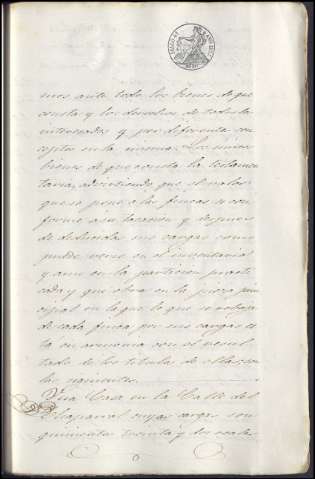 mos ante todo los bienes de que
consta y los derechos de todos los
interesados y por diferentes con
ceptos en la misma. Los únicos
bienes de que consta la testamen
taria, advirtiendo que el valor
que se pone a las fincas es con
forme a su tasacion y despues
de deducidas sus cargas como
puede verse en el inventario
y aun en la particion practi
cada y que obra en la pieza prin
cipal en la que lo que se rebaja
de cada finca por sus cargas es
ta en armonia con el resul
tado de los titulos de ellas, son
los siguientes.
Una Casa en la Calle del
Chaparral cuyas cargas son
quinientos treinta y dos reale